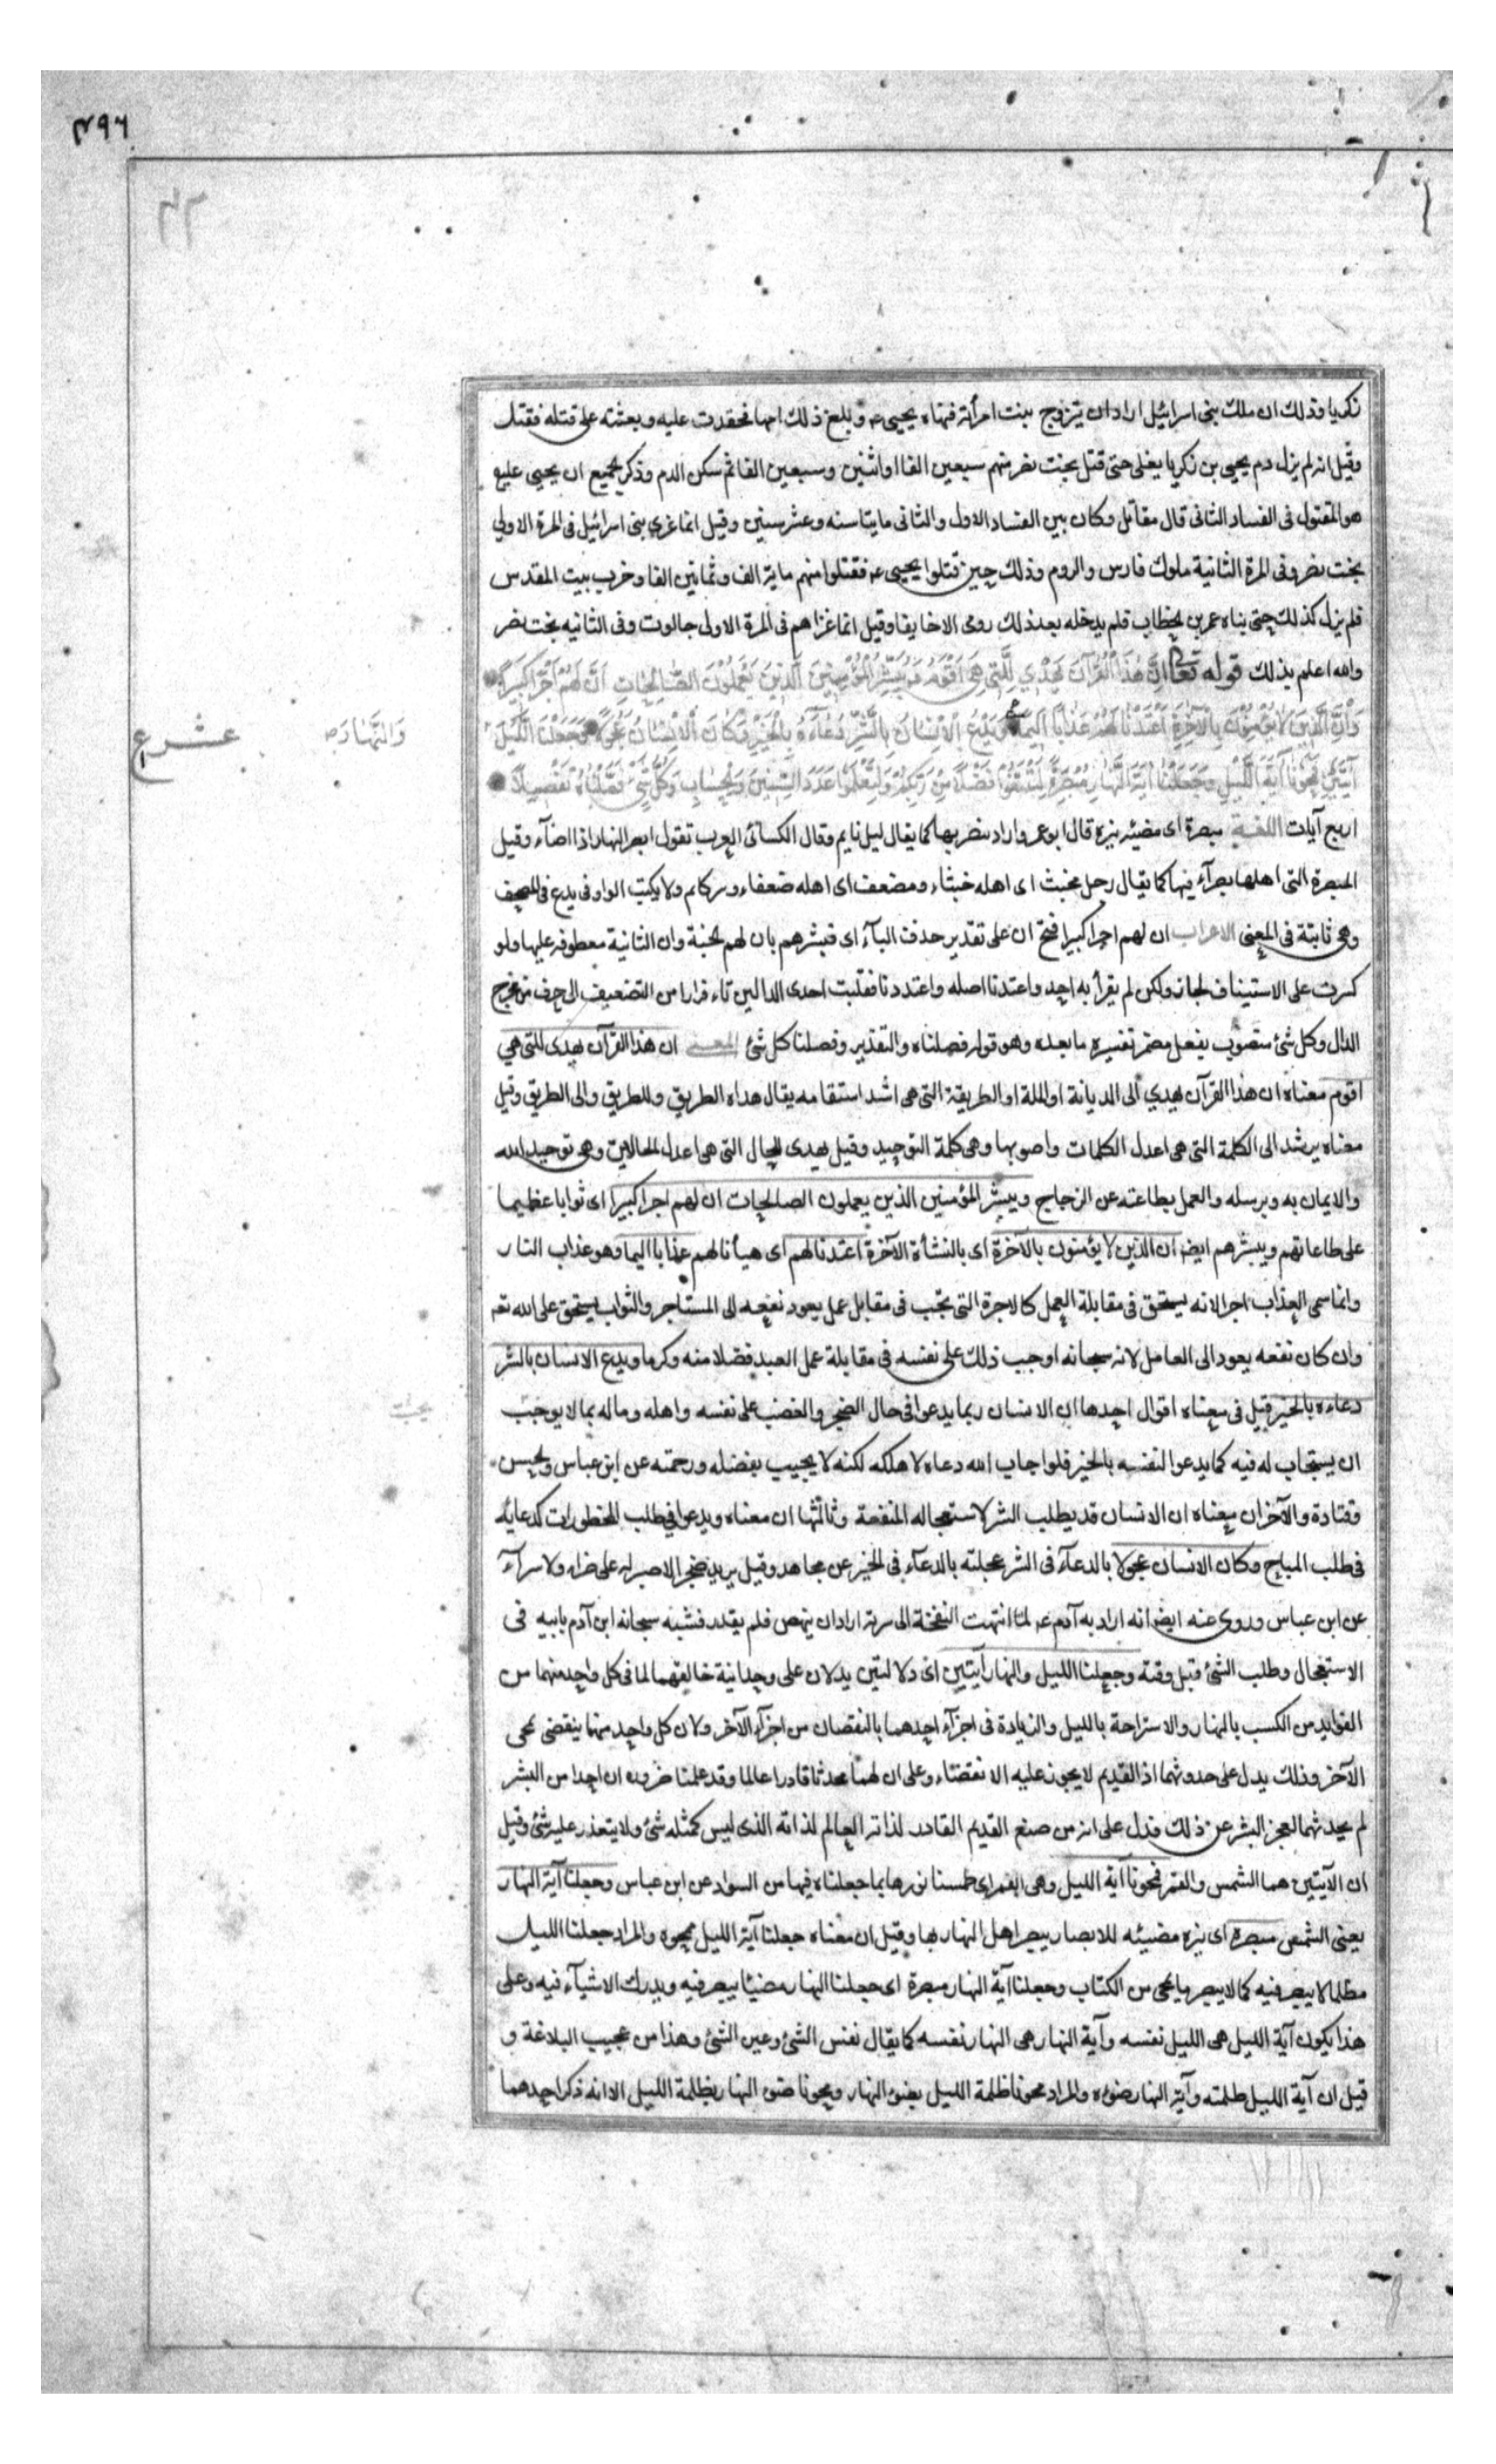 ۴۹۶
زكريا وذلك ان ملك بنى اسرائيل اراد ان يتزوج بنت امرأته فنهاه يحيى ع وبلغ ذلك امها فحقدت عليه وبعثته على قتله فقتله
وقيل انه لم يزل دم يحيى بن زكريا يغلى حتى قتل بخت نصر منهم سبعين الفا او اثنين وسبعين الفا ثم سكن الدم وذكر الجميع ان يحيى عليه
هو المقتول فى الفساد الثانى قال مقاتل وكان بين الفساد الاول والثانى مايتا سنه وعشر سنين وقيل انما غزى بنى اسرائيل فى المرة الاولى
بخت نصر وفى المرة الثانية ملوك فارس والروم وذلك حين قتلوا يحيى ع فقتلوا منهم ماية الف وثمانين الفا وخرب بيت المقدس
فلم يزل كذلك حتى بناه عمر بن الخطاب فلم يدخله بعد ذلك رومى الا خايفا وقيل انما غزاهم فى المرة الاولى جالوت وفى الثانيه بخت نصر
والله اعلم بذلك قوله تعالى اِنَّ هٰذَا الْقُرْآنَ يَهْدِي لِلَّتِي هِيَ اَقْوَمُ وَيُبَشِّرُ الْمُؤْمِنِينَ الَّذِينَ يَعْمَلُونَ الصَّالِحَاتِ اَنَّ لَهُمْ اَجْرًا كَبِيرًا
وَاَنَّ الَّذِينَ لَا يُؤْمِنُونَ بِالْآخِرَةِ اَعْتَدْنَا لَهُمْ عَذَابًا اَلِيمًا وَيَدْعُ الْاِنْسَانُ بِالشَّرِّ دُعَاءَهُ بِالْخَيْرِ وَكَانَ الْاِنْسَانُ عَجُولًا وَجَعَلْنَا اللَّيْلَ
وَالنَّهَارَ صح
عشر ع
آيَتَيْنِ فَمَحَوْنَا آيَةَ اللَّيْلِ وَجَعَلْنَا آيَةَ النَّهَارِ مُبْصِرَةً لِتَبْتَغُوا فَضْلًا مِنْ رَبِّكُمْ وَلِتَعْلَمُوا عَدَدَ السِّنِينَ وَالْحِسَابَ وَكُلَّ شَيْءٍ فَصَّلْنَاهُ تَفْصِيلًا
اربع آيات اللغة مبصرة اى مضيئه نيره قال ابو عمرو اراد يبصر بها كما يقال ليل نايم وقال الكسائى العرب تقول ابصر النهار اذا اضآء وقيل
المبصرة التى اهلها بصرآء فيها كما يقال رجل مخبث اى اهله خبثاء ومضعف اى اهله ضعفاء ولا يكتب الواو فى يدع فى المصحف
وهى ثابتة فى المعنى الاعراب ان لهم اجرا كبيرا فتح ان على تقدير حذف البآء اى فبشرهم بان لهم الجنة وان الثانية معطوفه عليها ولو
كسرت على الاستيناف لجاز ولكن لم يقرأ به احد واعتدنا اصله واعتددنا فقلبت احدى الدالين تاء فرارا من التضعيف الى حرف من مخرج
الدال وكل شئ منصوب بفعل مضمر تفسيره ما بعده وهو قوله فصلناه والتقدير وفصلنا كل شئ المعنى ان هذا القرآن يهدى للتى هي
اقوم معناه ان هذا القرآن يهدي الى الديانة او الملة او الطريقة التى هى اشد استقامه يقال هداه الطريق وللطريق والى الطريق وقيل
معناه يرشد الى الكلمة التى هى اعدل الكلمات واصوبها وهى كلمة التوحيد وقيل يهدى للحال التى هى اعدل الحالات وهى توحيد الله
والايمان به وبرسله والعمل بطاعته عن الزجاج ويبشر المؤمنين الذين يعملون الصالحات ان لهم اجرا كبيرا اى ثوابا عظيما
على طاعاتهم ويبشرهم ايضا ان الذين لا يؤمنون بالآخرة اى بالنشأة الآخرة اعتدنا لهم اى هيأنا لهم عذابا اليما وهو عذاب النار
وانما سمى العذاب اجرا لانه يستحق فى مقابلة العمل كالاجرة التى تجب فى مقابل عمل يعود نفعه الى المستاجر والثواب يستحق على الله تعه
وان كان نفعه يعود الى العامل لانه سبحانه اوجب ذلك على نفسه فى مقابلة عمل العبد فضلا منه وكرما ويدع الانسان بالشر
دعاءه بالخير قيل فى معناه اقوال احدها ان الانسان ربما يدعوا فى حال الضجر والغضب على نفسه واهله وماله بما لا يوجب
ان يستجاب له فيه كما يدعوا لنفسه بالخير فلو اجاب الله دعاه لاهلكه لكنه لا يجيب بفضله ورحمته عن ابن عباس والحسن
وقتادة والآخر ان معناه ان الانسان قد يطلب الشر لاستعجاله المنفعة وثالثها ان معناه ويدعوا فى طلب المحظورات كدعايه
فى طلب المباح وكان الانسان عجولا بالدعآء فى الشر عجلته بالدعآء فى الخير عن مجاهد وقيل يريد ضجرا لا صبر له على ضراء ولا سرآء
عن ابن عباس وروى عنه ايضا انه اراد به آدم ع لما انتهت النفخة الى سرته اراد ان ينهض فلم يقدر فشبه سبحانه ابن آدم بابيه فى
الاستعجال وطلب الشئ قبل وقته وجعلنا الليل والنهار آيتين اى دلالتين يدلان على وحدانية خالقهما لما فى كل واحد منهما من
الفوايد من الكسب بالنهار والاستراحة بالليل والزيادة فى اجزآء احدهما بالنقصان من اجزآء الآخر ولان كل واحد منهما ينقضى بمجى
الآخر وذلك يدل على حدوثهما اذ القديم لا يجوز عليه الانقضاء وعلى ان لهما محدثا قادرا عالما وقد علمنا ضرورة ان احدا من البشر
لم يحدثهما لعجز البشر عن ذلك فدل على انه من صنع القديم القادر لذاته العالم لذاته الذى ليس كمثله شئ ولا يتعذر عليه شئ وقيل
ان الآيتين هما الشمس والقمر فمحونا آية الليل وهى القمر اى طمسنا نورها بما جعلناه فيها من السواد عن ابن عباس وجعلنا آية النهار
يعنى الشمس مبصرة اى نيره مضيئه للابصار يبصر اهل النهار بها وقيل ان معناه جعلنا آية الليل ممحوه والمراد جعلنا الليل
مظلما لا يبصر فيه كما لا يبصر ما يمحى من الكتاب وجعلنا آية النهار مبصرة اى جعلنا النهار مضيئا يبصر فيه ويدرك الاشيآء فيه وعلى
هذا يكون آية الليل هى الليل نفسه وآية النهار هى النهار نفسه كما يقال نفس الشئ وعين الشئ وهذا من عجيب البلاغة و
قيل ان آية الليل ظلمته وآية النهار ضوءه والمراد محونا ظلمة الليل بضوء النهار ومحونا ضوء النهار بظلمة الليل الا انه ذكر احدهما